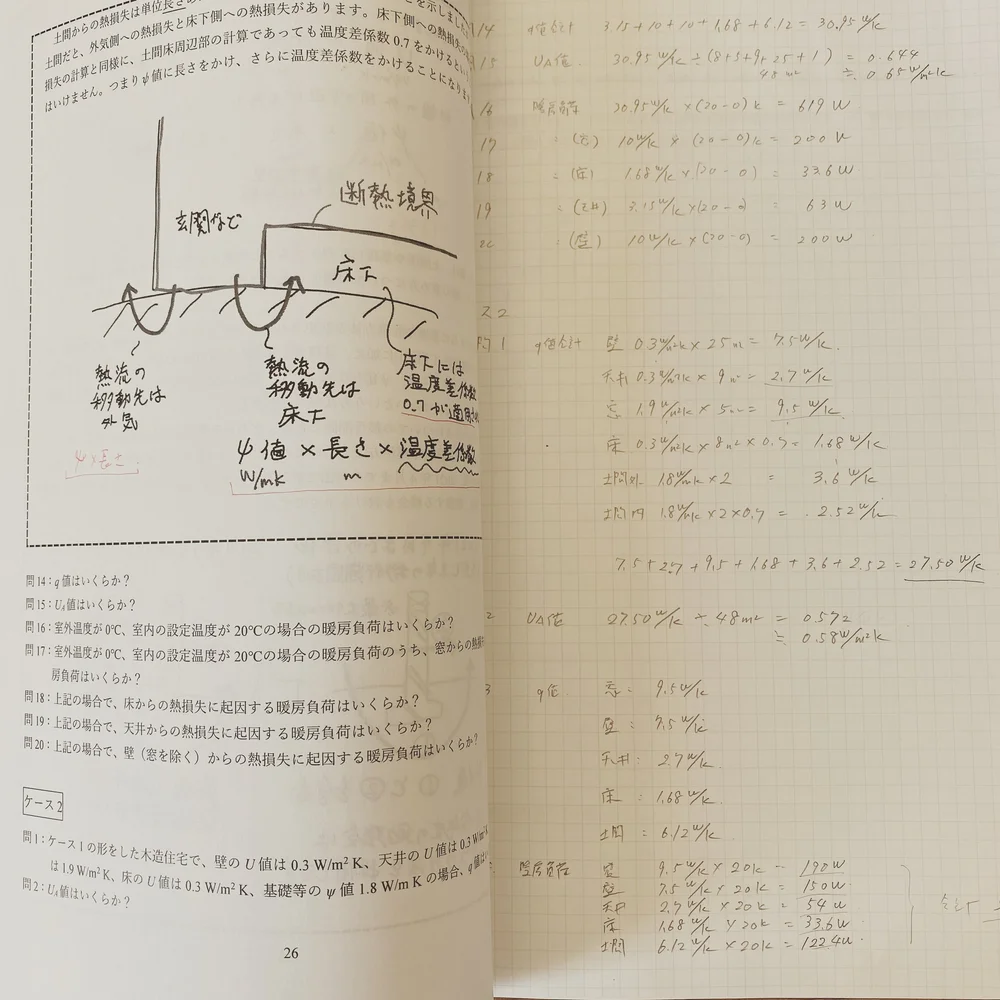 土間からの熱損失は単位長さあ
を示しました
土間だと、外気側への熱損失と床下側への熱損失があります。床下側への熱損失の
損失の計算と同様に、土間床周辺部の計算であっても温度差係数0.7をかけるとい
はいけません。つまりψ値に長さをかけ、さらに温度差係数をかけることになりま
断熱境界
玄関など
床下
熱流の
移動先は
外気
熱流の
移動先は
床下
床下には
温度差係数
0.7が適用
ψ×長さ
ψ値×長さ×温度差係数
W/mk m
問14:q値はいくらか?
問15:UA値はいくらか?
問16:室外温度が0℃、室内の設定温度が20℃の場合の暖房負荷はいくらか?
問17:室外温度が0℃、室内の設定温度が20℃の場合の暖房負荷のうち、窓からの熱損
房負荷はいくらか?
問18:上記の場合で、床からの熱損失に起因する暖房負荷はいくらか?
問19:上記の場合で、天井からの熱損失に起因する暖房負荷はいくらか?
問20:上記の場合で、壁(窓を除く)からの熱損失に起因する暖房負荷はいくらか?
ケース2
問1:ケース1の形をした木造住宅で、壁のU値は0.3 W/m²K、天井のU値は0.3 W/
は1.9 W/m²K、床のU値は0.3 W/m²K、基礎等のψ値1.8 W/m Kの場合、q値は
問2:UA値はいくらか?
26
14 q値合計 3.15+10+10+1.68+6.12=30.95W/K
15 UA値 30.95W/K÷(8+5+9+25+1)=0.644
48m² ≒0.65W/m²K
16 暖房負荷 30.95W/K×(20-0)K=619W
17 :(窓) 10W/K×(20-0)K=200W
18 :(床) 1.68W/K×(20-0)=33.6W
19 :(天井) 3.15W/K×(20-0)=63W
20 :(壁) 10W/K×(20-0)=200W
ス2
問1 q値合計 壁 0.3W/m²K×25m²=7.5W/K.
天井 0.3W/m²K×9m²=2.7W/K
窓 1.9W/m²K×5m²=9.5W/K
床 0.3W/m²K×8m²×0.7=1.68W/K
土間外 1.8W/mK×2=3.6W/K
土間内 1.8W/mK×2×0.7=2.52W/K
7.5+2.7+9.5+1.68+3.6+2.52=27.50W/K
2 UA値 27.50W/K÷48m²=0.572
≒0.58W/m²K
3 q値. 窓: 9.5W/K
壁: 7.5W/K
天井: 2.7W/K.
床: 1.68W/K.
土間: 6.12W/K.
暖房負荷 窓 9.5W/K×20K=190W
壁 7.5W/K×20K=150W
天井 2.7W/K×20K=54W
床 1.68W/K×20K=33.6W
土間 6.12W/K×20K=122.4W
合計